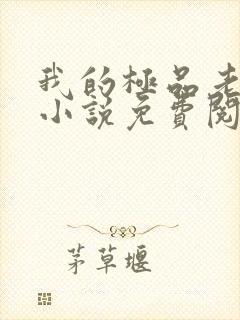 我的極品老
小说免費閱
茅草堰